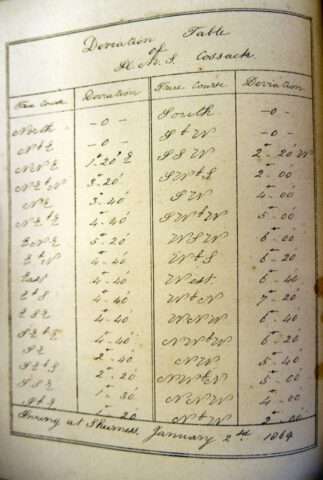 Deviation Table
of
H.M.S. Cossack.
True Course Deviation True Course Deviation
North -0- South -0-
N t E -0- S t W -0-
NNE 1°-20' E SSW 2°-20' W
NE t N 3°-20' SW t S 2°-00'
NE 3°-40' SW 4°-00'
NE t E 4°-40' SW t W 5°-00'
ENE 5°-20' WSW 6°-00'
E t N 4°-40' W t S 6°-20'
East 4°-40' West 6°-40'
E t S 4°-40' W t N 7°-20'
ESE 4°-40' WNW 6°-40'
SE t E 4°-40' NW t W 6°-20'
SE 2°-40' NW 6°-00'
SE t S 2°-20' NW t N 5°-00'
SSE 1°-30' NNW 4°-00'
S t E 1°-20' N t W 2°-00'
at Sheerness. January 2nd 1869